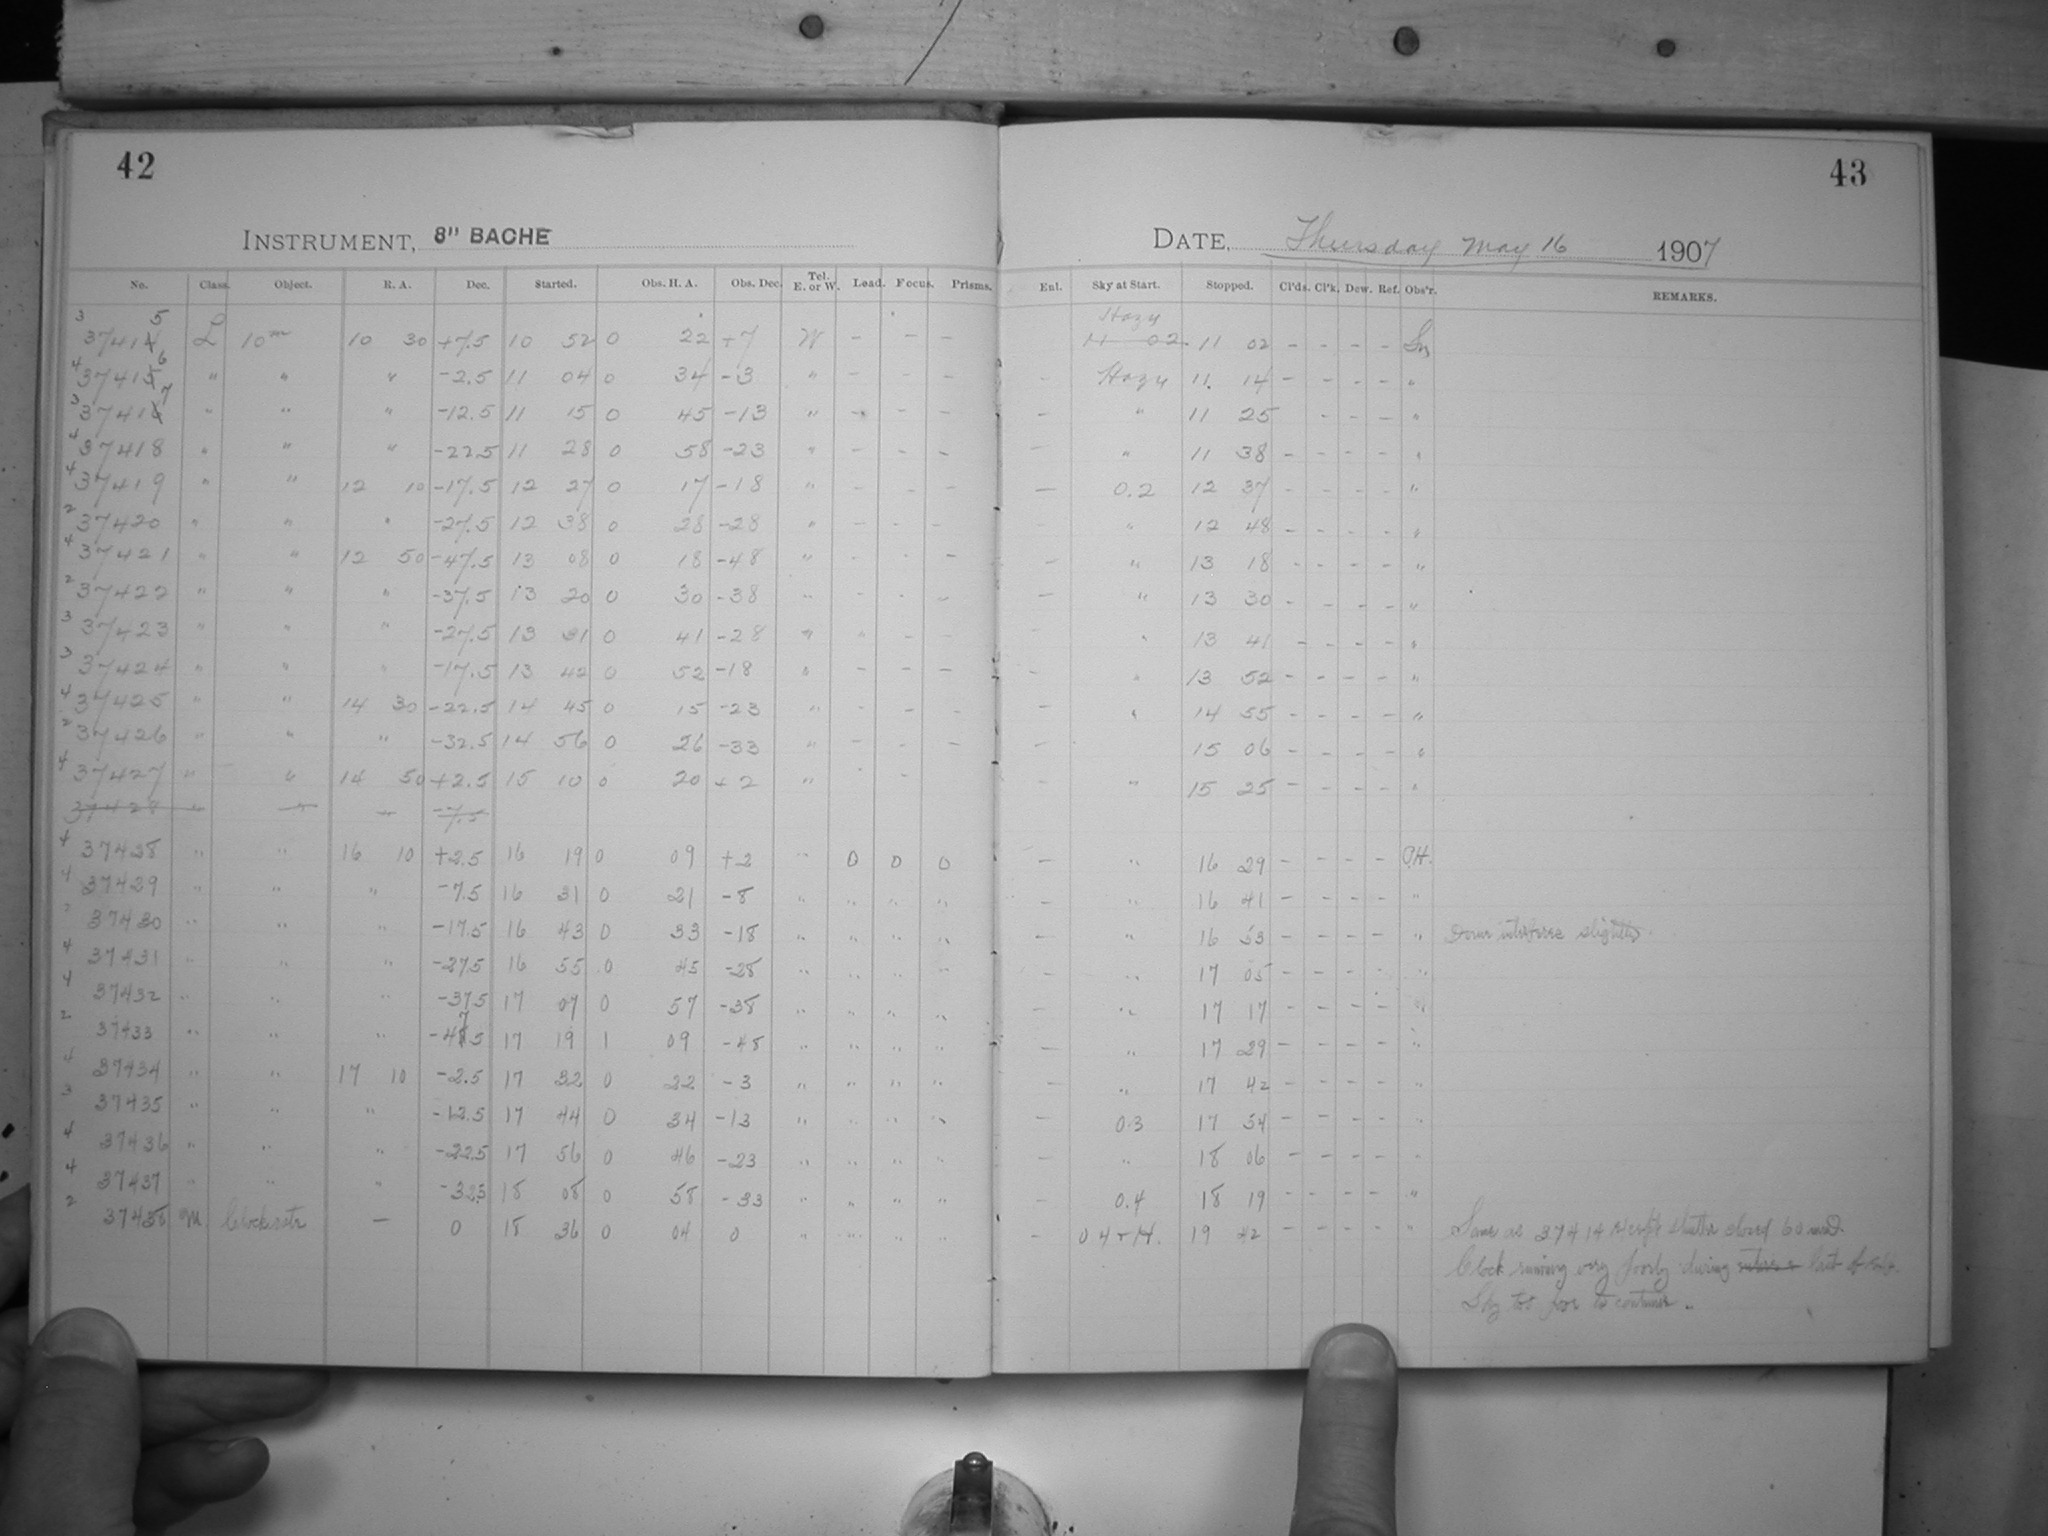 42
43
INSTRUMENT, 8" BACHE
DATE, Thursday May 16 1907
No. Class. Object. R. A. Dec. Started. Obs. H. A. Obs. Dec. Tel. E. or W. Load. Focus. Prisms. Enl. Sky at Start. Stopped. Cl'ds. Cl'k. Dew. Ref. Obs'r. REMARKS.
3 37415 L 10m 10 30 +7.5 10 52 0 22 +7 W - - - Hazy 11 02 11 02 - - - -
4 37416 " " " -2.5 11 04 0 34 -3 " - - - - Hazy 11 14 - - - - "
3 37417 " " " -12.5 11 15 0 45 -13 " - - - - " 11 25 - - - "
4 37418 " " " -22.5 11 28 0 58 -23 " - - - - " 11 38 - - - - "
4 37419 " " 12 10 -17.5 12 27 0 17 -18 " - - - - 0.2 12 37 - - - - "
2 37420 " " " -27.5 12 38 0 28 -28 " - - - " 12 48 - - - - "
4 37421 " " 12 50 -47.5 13 08 0 18 -48 " - - - - " 13 18 - - - - "
2 37422 " " " -37.5 13 20 0 30 -38 " - - - - " 13 30 - - - - "
3 37423 " " " -27.5 13 31 0 41 -28 " " - - " 13 41 - - - - "
3 37424 " " " -17.5 13 42 0 52 -18 " - - - - " 13 52 - - - - "
4 37425 " " 14 30 -22.5 14 45 0 15 -23 " - - - - " 14 55 - - - - "
2 37426 " " " -32.5 14 56 0 26 -33 " - - - - 15 06 - - - - "
4 37427 " " 14 50 +2.5 15 10 0 20 +2 " - - - " 15 25 - - - - "
37428 " " " -7.5
4 37428 " " 16 10 +2.5 16 19 0 09 +2 " 0 0 0 - " 16 29 - - - - O.H.
4 37429 " " " -7.5 16 31 0 21 -8 " " " " - " 16 41 - - - - "
37430 " " " -17.5 16 43 0 33 -18 " " " " - " 16 53 - - - - " Dome interferes slightly.
4 37431 " " " -27.5 16 55 0 45 -28 " " " " - " 17 05 - - - - "
4 37432 " " " -37.5 17 07 0 57 -38 " " " " - " 17 17 - - - - "
2 37433 " " " -47.5 17 19 1 09 -48 " " " " - " 17 29 - - - - "
4 37434 " " 17 10 -2.5 17 32 0 22 -3 " " " " - " 17 42 - - - - "
3 37435 " " " -12.5 17 44 0 34 -13 " " " " - 0.3 17 54 - - - - "
4 37436 " " " -22.5 17 56 0 46 -23 " " " " - " 18 06 - - - - "
4 37437 " " " -32.5 18 08 0 58 -33 " " " " - 0.4 18 19 - - - - "
2 37438 M Clock rate - 0 18 36 0 04 0 " " " " - 0.4 + H. 19 42 - - - - " Same as 37414 except shutter closed 60
Clock running very poorly during last of
Sky too poor to continue.